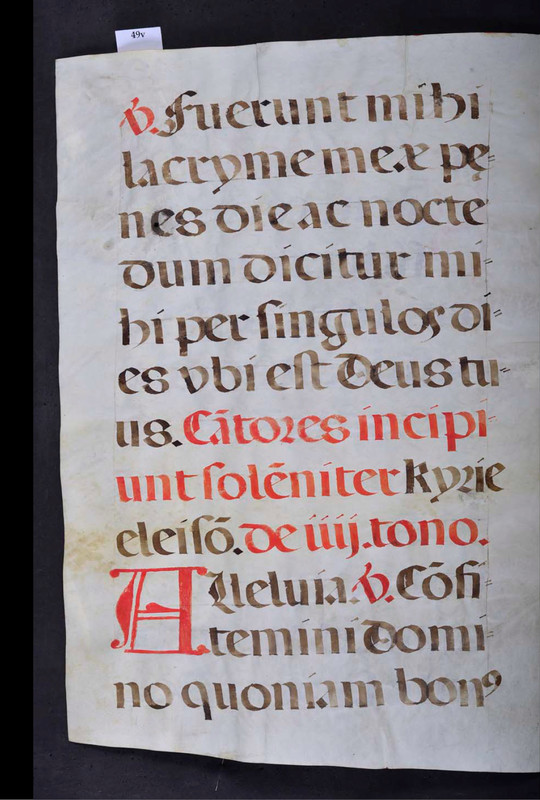 49v
℣. Fuerunt mihi
lacryme meæ pę=
nes die ac nocte
dum dicitur mi=
hi per singulos di=
es vbi est Deus tu=
us. Cātores incipi=
unt solēniter kyrie
eleisō. de iiij. tono.
Alleluia. ℣. Cōfi=
temini Domi=
no quoniam bonꝰ